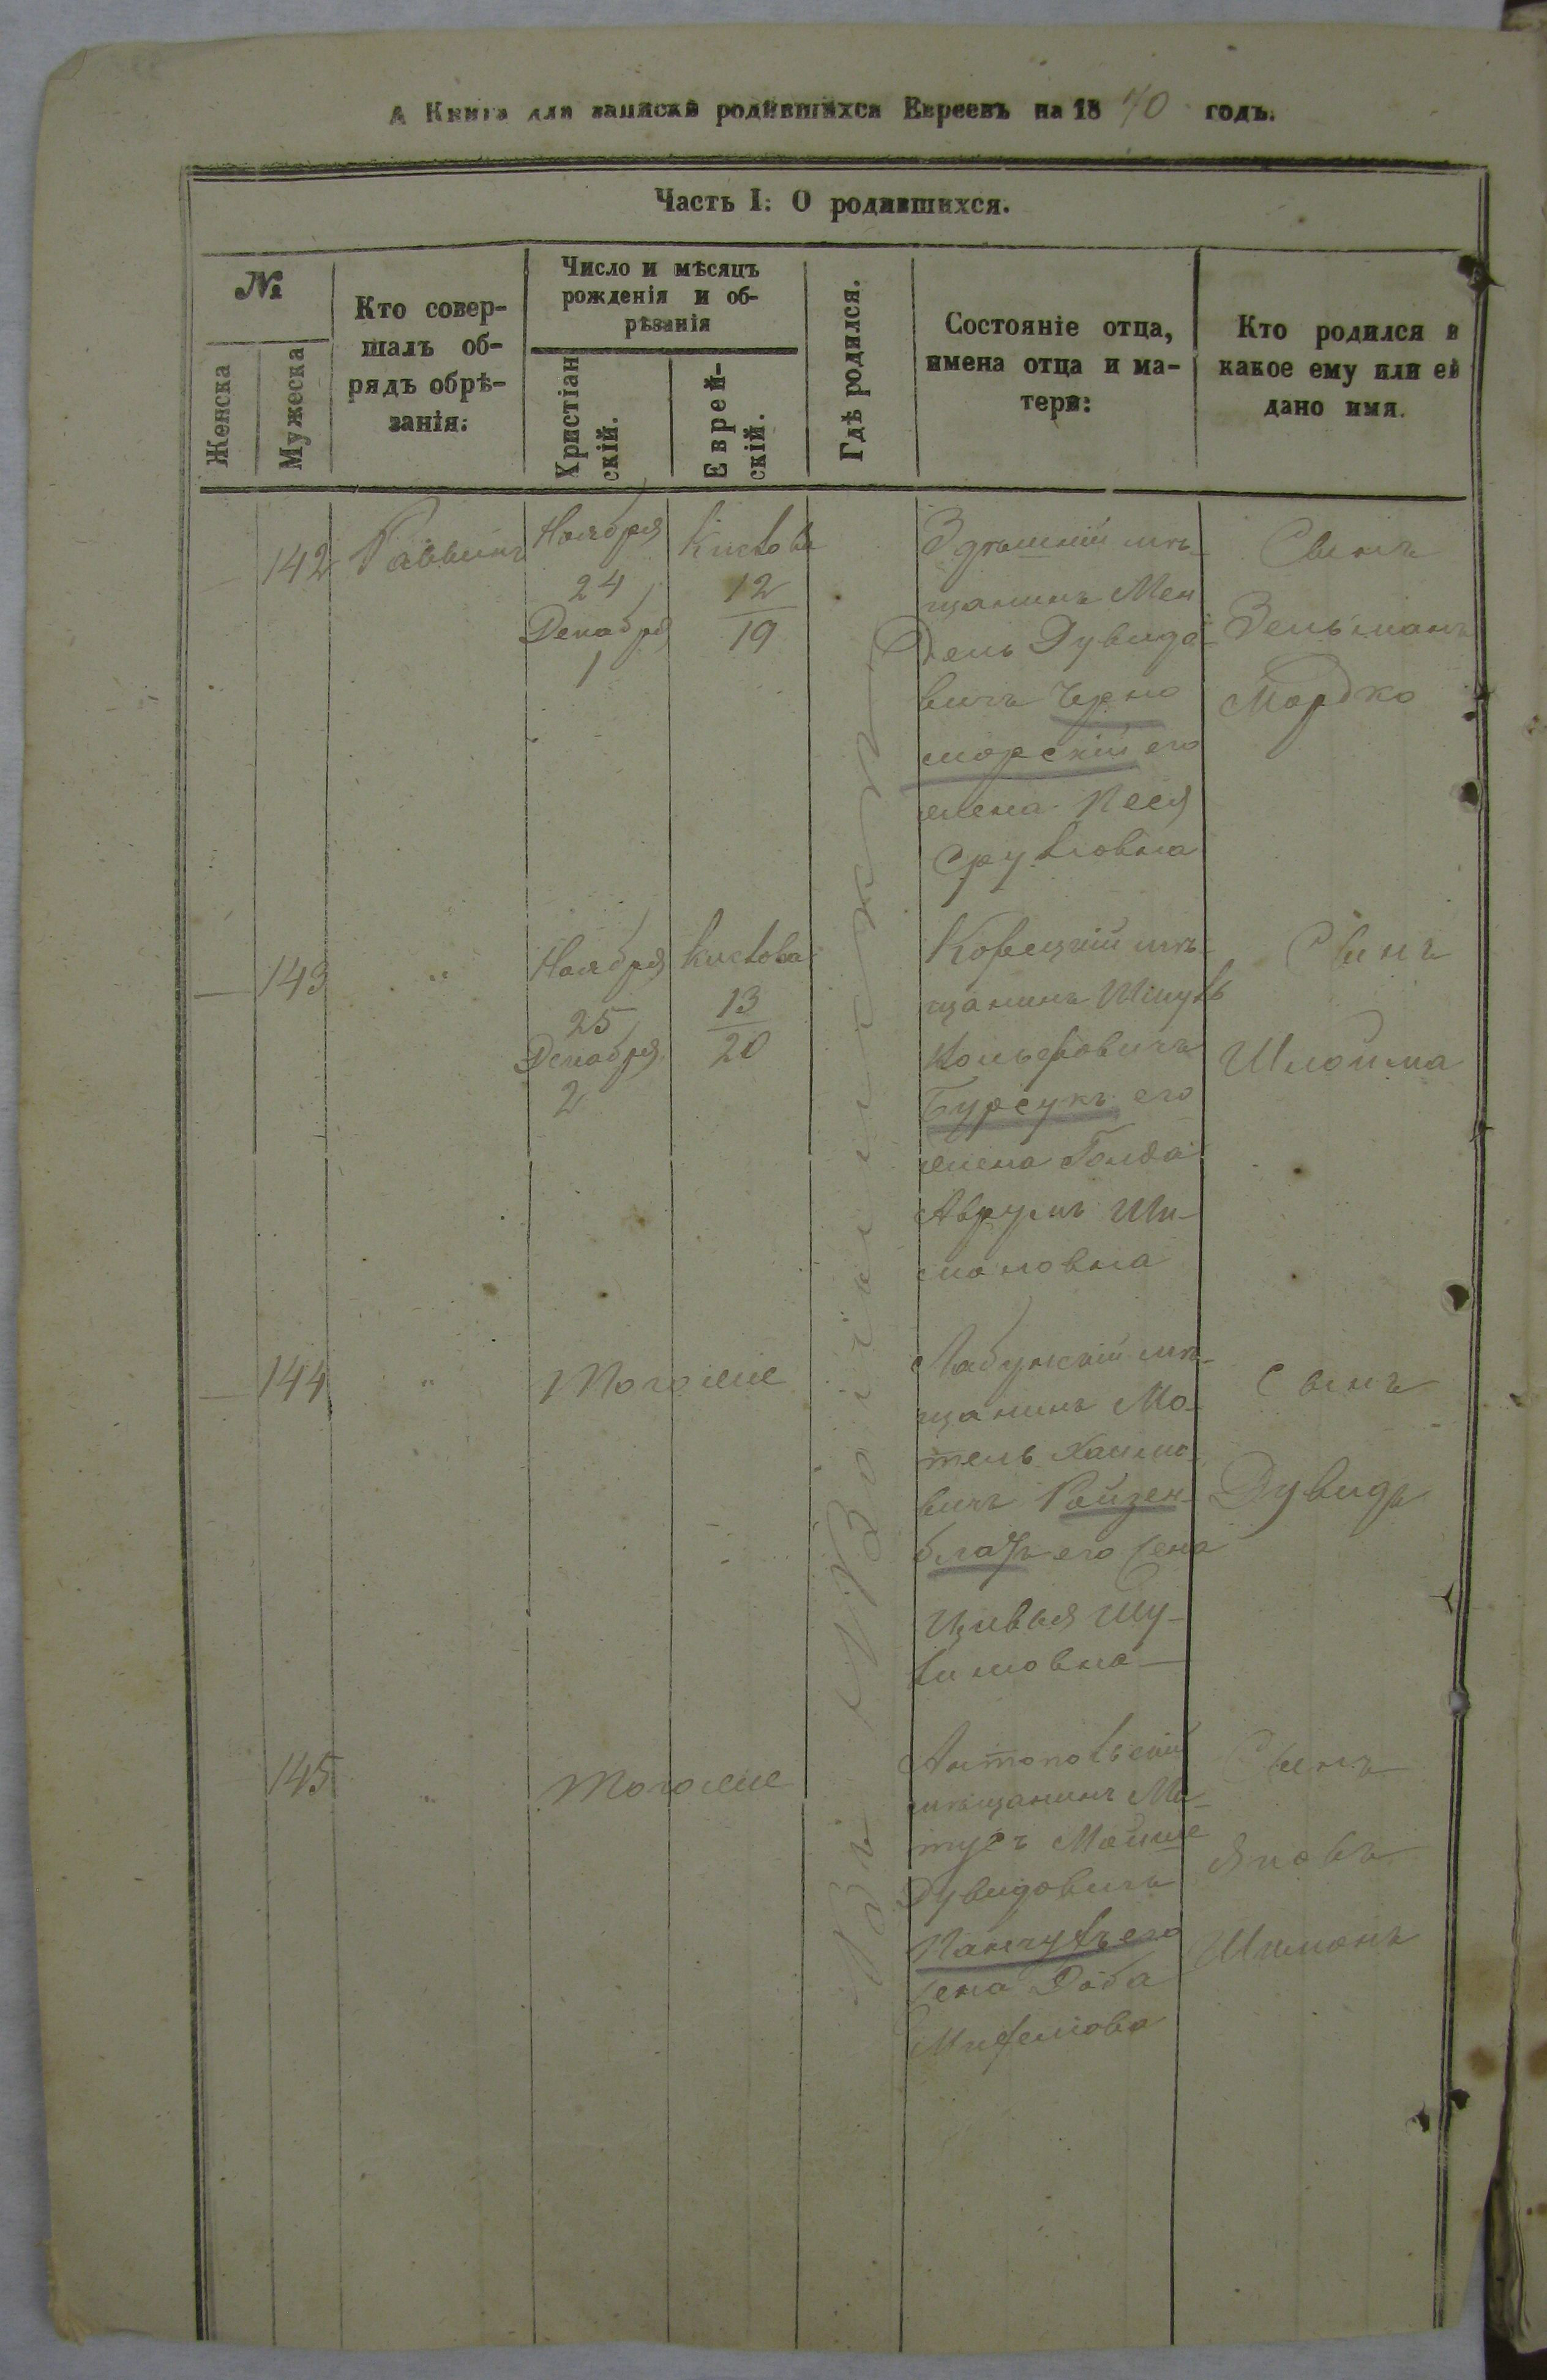 А Книга для записки родившихся Евреевъ на 1870 годъ.
Часть I: О родившихся.
№
Женска
Мужеска
Кто совер-
шалъ об-
рядъ обрѣ-
занія:
Число и мѣсяцъ
рожденія и об-
рѣзанія
Христіан
скій.
Еврей-
скій.
Гдѣ родился.
Состояніе отца,
имена отца и ма-
тери:
Кто родился и
какое ему или ей
дано имя.
142
Раввинъ
Ноября
24
Декабря
1
Кислова
12
19
Здѣшній мѣ-
щанинъ Мен
дель Дувидо
вичъ Черно
морскій его
жена Песя
Срулювна
Сынъ
Зельманъ
Мордко
143
"
Ноября
25
Декабря
2
Кислова
13
20
Корецкій мѣ-
щанинъ Шмуль
Бурсукъ его
жена Голда
Аврумъ Ши-
моновна
Сынъ
Шлойма
144
"
Тогоже
Лабунскій мѣ-
щанинъ Мо-
тель Хаимо-
вичъ Ройзен-
блатъ его жена
Цивья
Сынъ
Дувидъ
145
"
Тогоже
Антопольскій
мѣщанинъ
Мойше
Дувидовичъ
его
жена Доба
Сынъ
Яковъ
Шимонъ